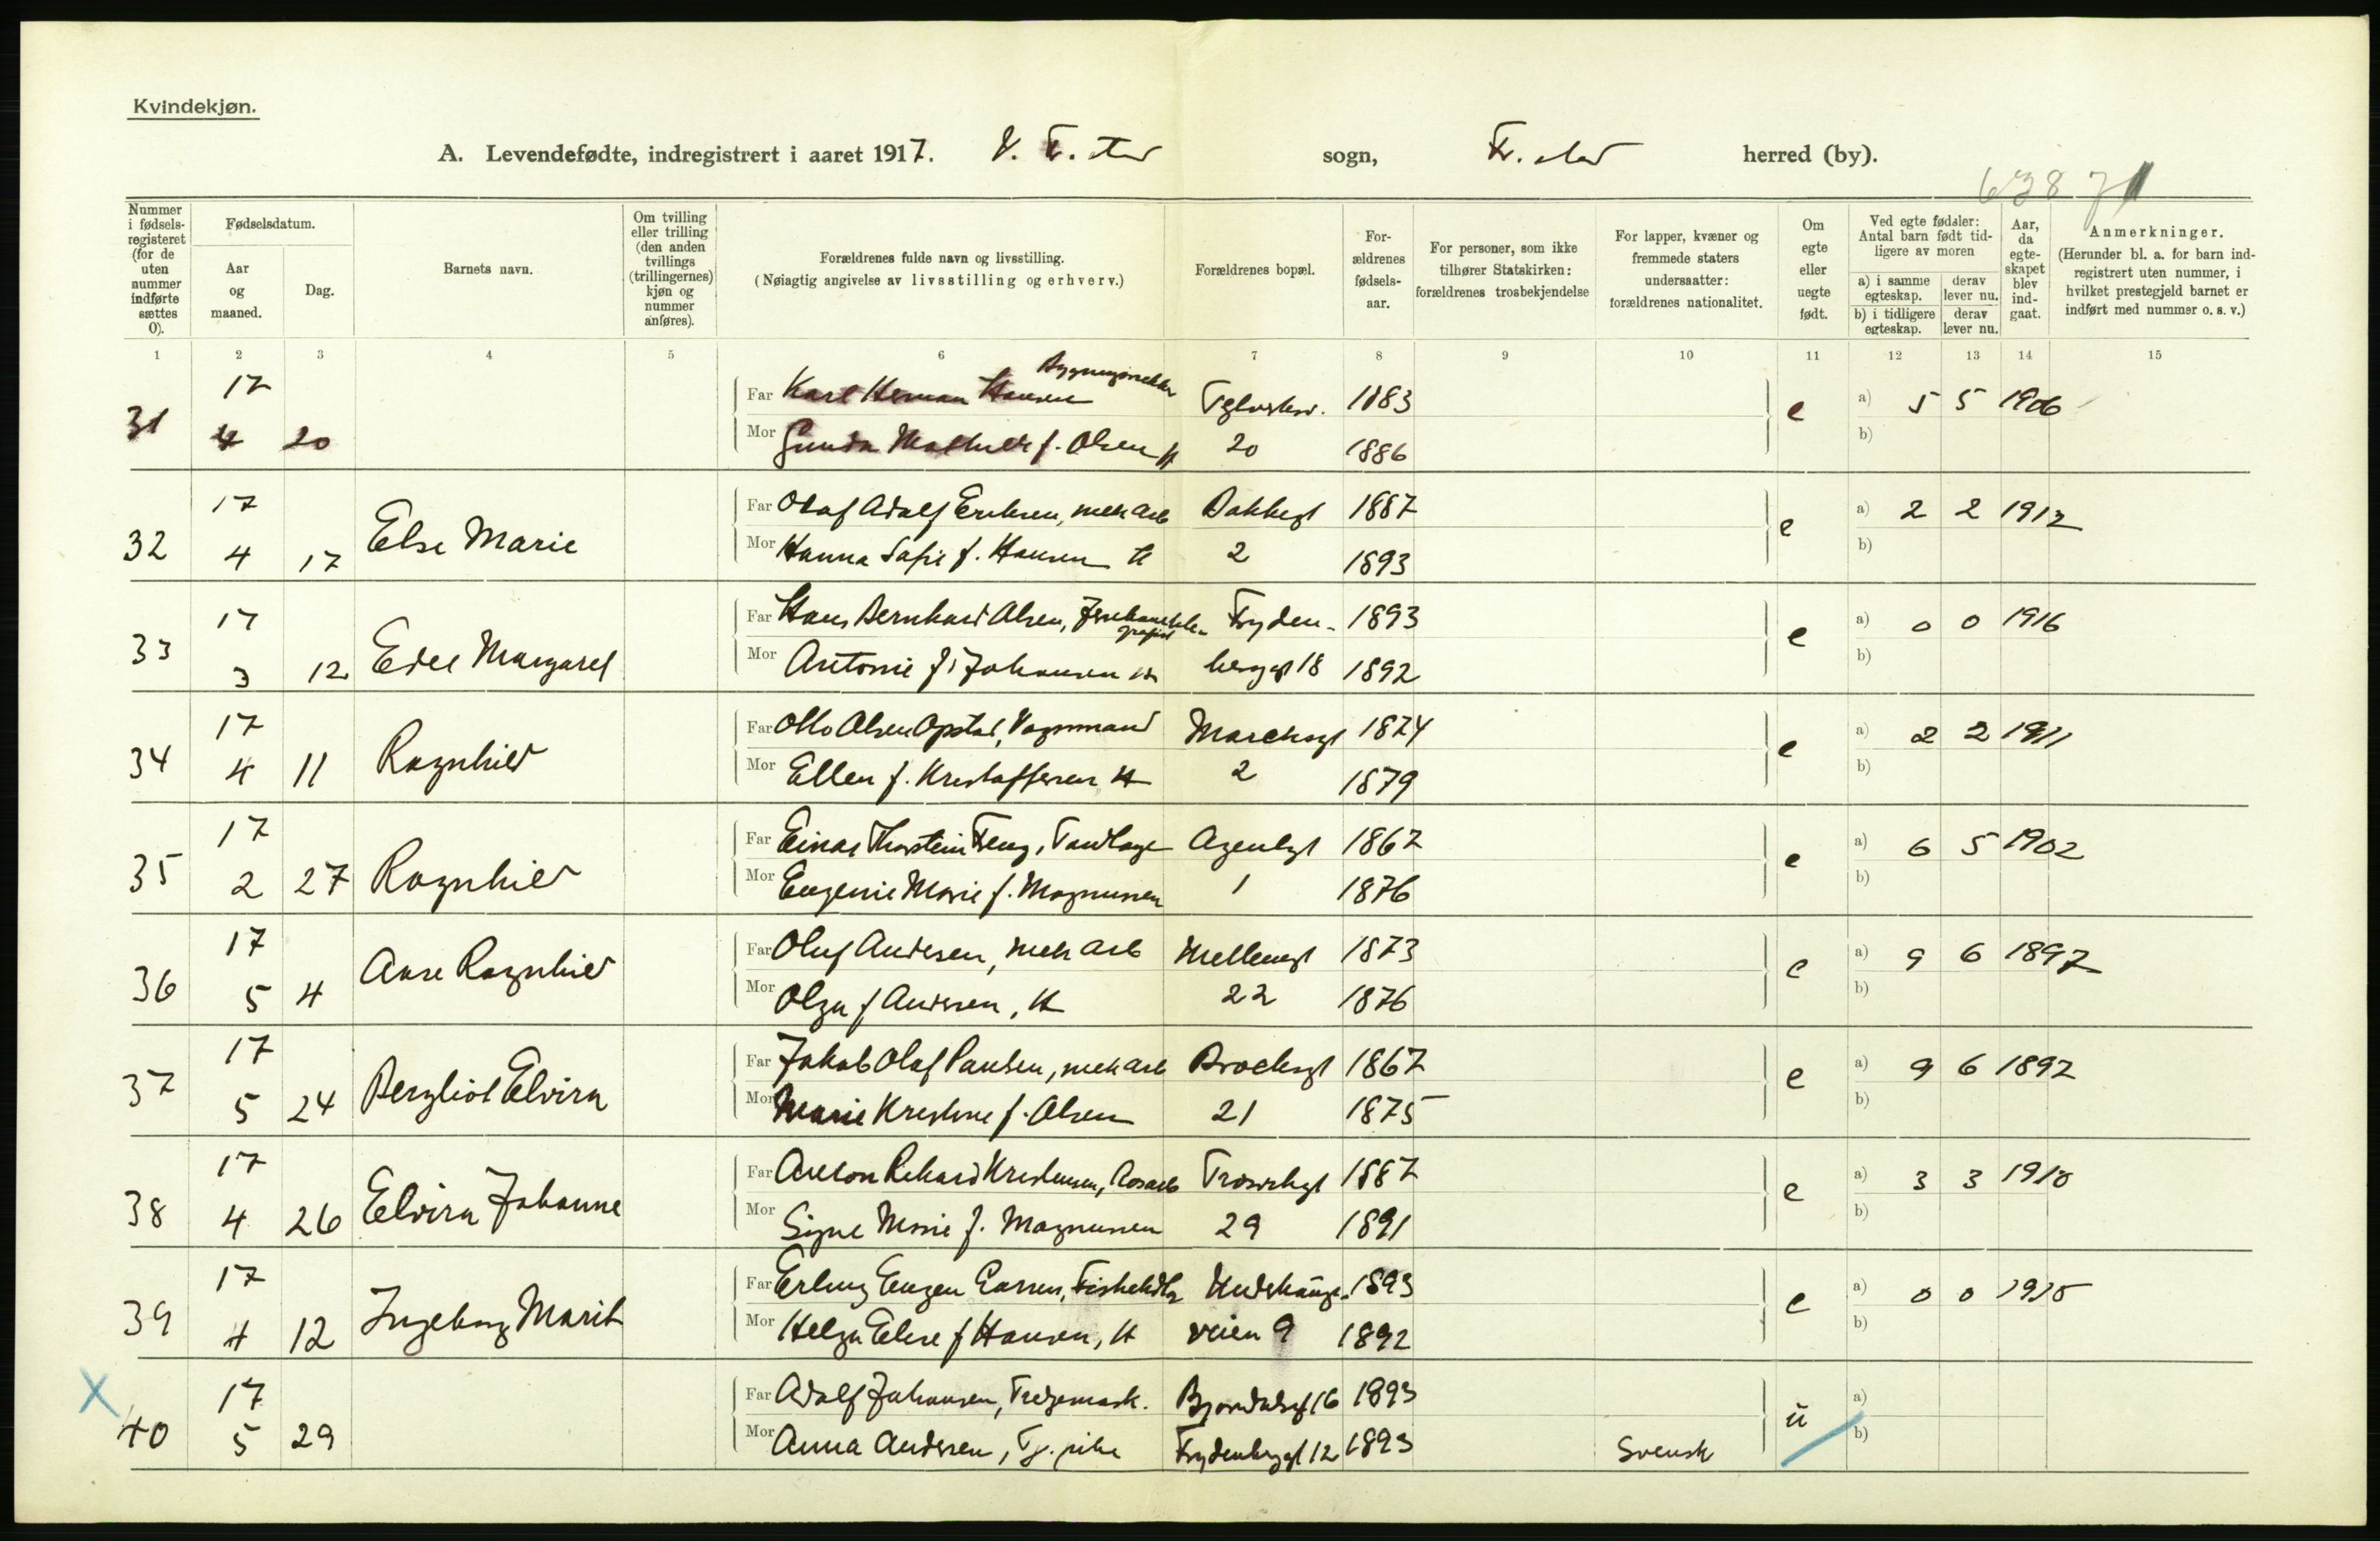 Kvindekjøn.
A. Levendefødte, indregistrert i aaret 1917. V. Fr. stad sogn, Fr. stad herred (by).
6387
Nummer i fødselsregisteret (for de uten nummer indførte sættes 0).
Fødselsdatum.
Aar og maaned.
Dag.
Barnets navn.
Om tvilling eller trilling (den anden tvillings (trillingernes) kjøn og nummer anføres).
Forældrenes fulde navn og livsstilling.
(Nøiagtig angivelse av livsstilling og erhverv.)
Forældrenes bopæl.
Forældrenes fødselsaar.
For personer, som ikke tilhører Statskirken: forældrenes trosbekjendelse
For lapper, kvæner og fremmede staters undersaatter: forældrenes nationalitet.
Om egte eller uegte født.
Ved egte fødsler: Antal barn født tidligere av moren
a) i samme egteskap. derav lever nu.
b) i tidligere egteskap. derav lever nu.
Aar, da egteskapet blev indgaat.
Anmerkninger.
(Herunder bl. a. for barn indregistrert uten nummer, i hvilket prestegjeld barnet er indført med nummer o. s. v.)
1 2 3 4 5 6 7 8 9 10 11 12 13 14 15
31 17 Far Karl Herman Hansen 1883 e a) 5 5 1906
4 20 Mor Gunda Mathilde f. Olsen H 20 1886 b)
32 17 Else Marie Far Olaf Adolf Eriksen, mek arb Bakkegt 1887 e a) 2 2 1912
4 17 Mor Hanna Sofie f. Hansen H 2 1893 b)
33 17 Edel Margaret Far Hans Bernhard Olsen, Fryden- 1893 e a) 0 0 1916
3 12 Mor Antonie f. Johansen berggt 18 1892 b)
34 17 Ragnhild Far Otto Olsen Opstad, Vognmand 1874 e a) 2 2 1911
4 11 Mor Ellen f. Kristoffersen H 2 1879 b)
35 17 Ragnhild Far Einar Thorstein Feng, Tandlæge Agentgt 1867 e a) 6 5 1902
2 27 Mor Eugenie Marie f. Magnussen 1 1876 b)
36 17 Aase Ragnhild Far Oluf Andersen, mek arb Mellemgt 1873 e a) 9 6 1897
5 4 Mor Olga f Andersen, H 22 1876 b)
37 17 Bergliot Elvira Far Jakob Olaf Paulsen, mek arb Brochsgt 1867 e a) 9 6 1892
5 24 Mor Marie Kristine f. Olsen 21 1875 b)
38 17 Elvira Johanne Far Anton Rikard Kristensen, Trosvikgt 1887 e a) 3 3 1910
4 26 Mor Signe Marie f. Magnussen 29 1891 b)
39 17 Ingeborg Marit Far Erling Eugen Larsen, Fiskehdlr 1893 e a) 0 0 1915
4 12 Mor Helga Elise f Hansen, H veien 9 1892 b)
X 40 17 Far Adolf Johansen, 16 1893 u a)
5 29 Mor Anna Andersen, Tj. pike Frydenberggt 12 1893 Svensk b)